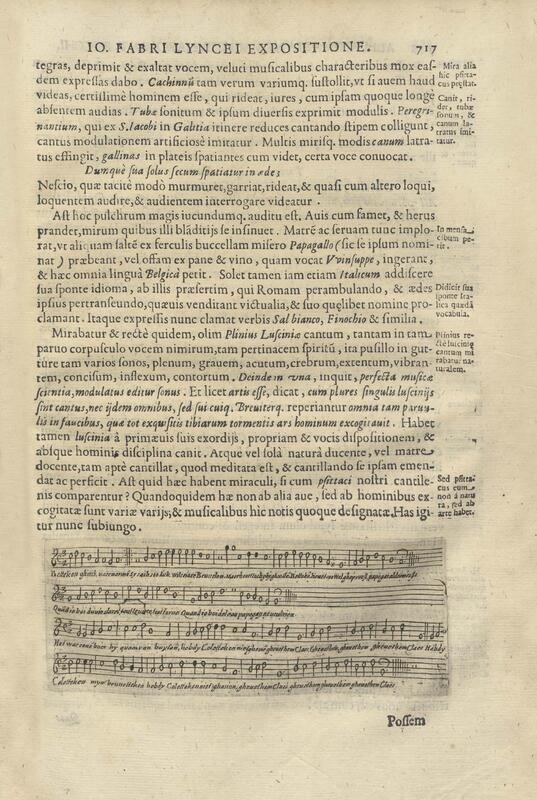 IO. FABRI LYNCEI EXPOSITIONE. 717
tegras, deprimit & exaltat vocem, veluci musicalibus characteribus mox eas-
dem expressas dabo. Cachinnū tam verum variumq. sustollit, vt si auem haud
videas, certissimè hominem esse, qui rideat, iures, cum ipsam quoque longè
absentem audias. Tubæ sonitum & ipsum diuersis exprimit modulis. Peregri-
nantium, qui ex S. Iacobi in Galitia itinere reduces cantando stipem colligunt,
cantus modulationem artificiosè imitatur. Multis mirisq. modis canum latra-
tus effingit, gallinas in plateis spatiantes cum videt, certa voce conuocat.
Dumquè sua solus secum spatiatur in æde;
Nescio, quæ tacitè modò murmuret, garriat, rideat, & quasi cum altero loqui,
loquentem audire, & audientem interrogare videatur.
Ast hoc pulchrum magis iucundumq. auditu est. Auis cum famet, & herus
prandet, mirum quibus illi blāditijs se insinuet. Matrē ac seruam tunc implo-
rat, vt aliquam saltē ex ferculis buccellam misero Papagallo (sic se ipsum nomi-
nat) præbeant, vel offam ex pane & vino, quam vocat Vvinsuppe, ingerant,
& hæc omnia linguâ Belgicâ petit. Solet tamen iam etiam Italicum addiscere
sua sponte idioma, ab illis præsertim, qui Romam perambulando, & ædes
ipsius pertranseundo, quæuis venditant victualia, & suo quęlibet nomine pro-
clamant. Itaque expressis nunc clamat verbis Sal bianco, Finochio & similia.
Mirabatur & rectè quidem, olim Plinius Lusciniæ cantum, tantam in tam
paruo corpusculo vocem nimirum, tam pertinacem spiritū, ita pusillo in gut-
ture tam varios sonos, plenum, grauem, acutum, crebrum, extentum, vibran-
tem, concisum, inflexum, contortum. Deinde in vna, inquit, perfecta musicæ
scientia, modulatus editur sonus. Et licet artis esse, dicat, cum plures singulis luscinijs
sint cantus, nec ijdem omnibus, sed sui cuiq. Breuiterq. reperiantur omnia tam paruu-
lis in faucibus, quæ tot exquisitis tibiarum tormentis ars hominum excogitauit. Habet
tamen luscinia à primæuis suis exordijs, propriam & vocis dispositionem, &
absque hominis disciplina canit. Atque vel solâ naturâ ducente, vel matre
docente, tam aptè cantillat, quod meditata est, & cantillando se ipsam emen-
dat ac perficit. Ast quid hæc habent miraculi, si cum psittaci nostri cantile-
nis comparentur? Quandoquidem hæ non ab alia aue, sed ab hominibus ex-
cogitatæ sunt variæ varijs; & musicalibus hîc notis quoque designatæ. Has igi-
tur nunc subiungo.
Mira alia
hic psita-
cus pręstat.
Canit, ri-
det, tubæ
sonum, &
canum la-
tratus imi-
tatur.
In mensa
cibum pe-
tit.
Didicit sua
sponte Ita-
lica quædā
vocabula.
Plinius re-
ctè lusciniæ
cantum mi
rabatur na-
turalem.
Sed psitta-
cus eum
non à natu
ra, sed ab
arte habet.
Possem